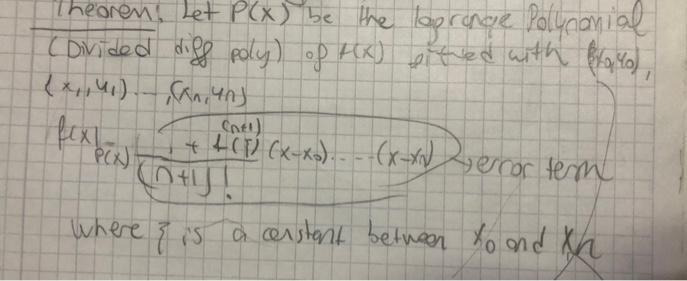 Theorem: Let P(x) be the lagrange Polynomial
(Divided diff poly) of f(x) fitted with (x0,y0),
(x1,y1) ..., (xn,yn)
f(x) = P(x) + f^(n+1)(ξ) / (n+1)! (x-x0)....(x-xn) → error term
where ξ is a constant between x0 and xn